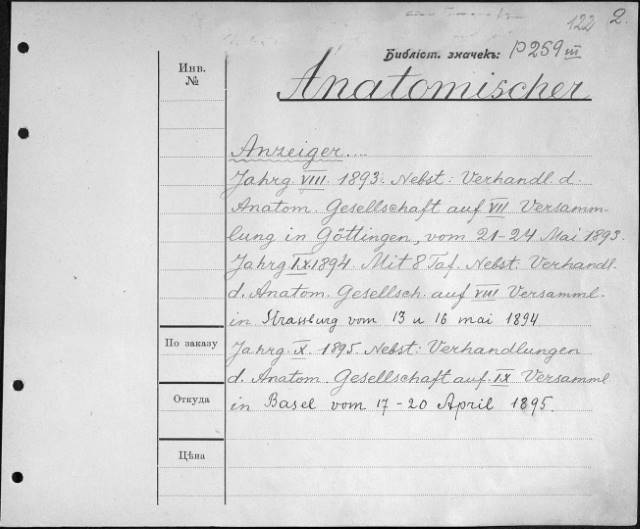 122 2.
Библіот. значекъ: P259III
Инв.
№
Anatomischer
Anzeiger....
Jahrg. VIII. 1893. Nebst: Verhandl. d.
Anatom. Gesellschaft auf VII Versamm-
lung in Göttingen, vom 21-24 Mai 1893.
Jahrg IX.1894. Mit 8 Taf. Nebst: Verhandl.
d. Anatom. Gesellsch. auf VIII Versamml.
in Strassburg vom 13 u 16 mai 1894
По заказу
Jahrg. X. 1895. Nebst: Verhandlungen
d. Anatom. Gesellschaft auf. IX Versamml
Откуда
in Basel vom 17-20 April 1895.
Цѣна